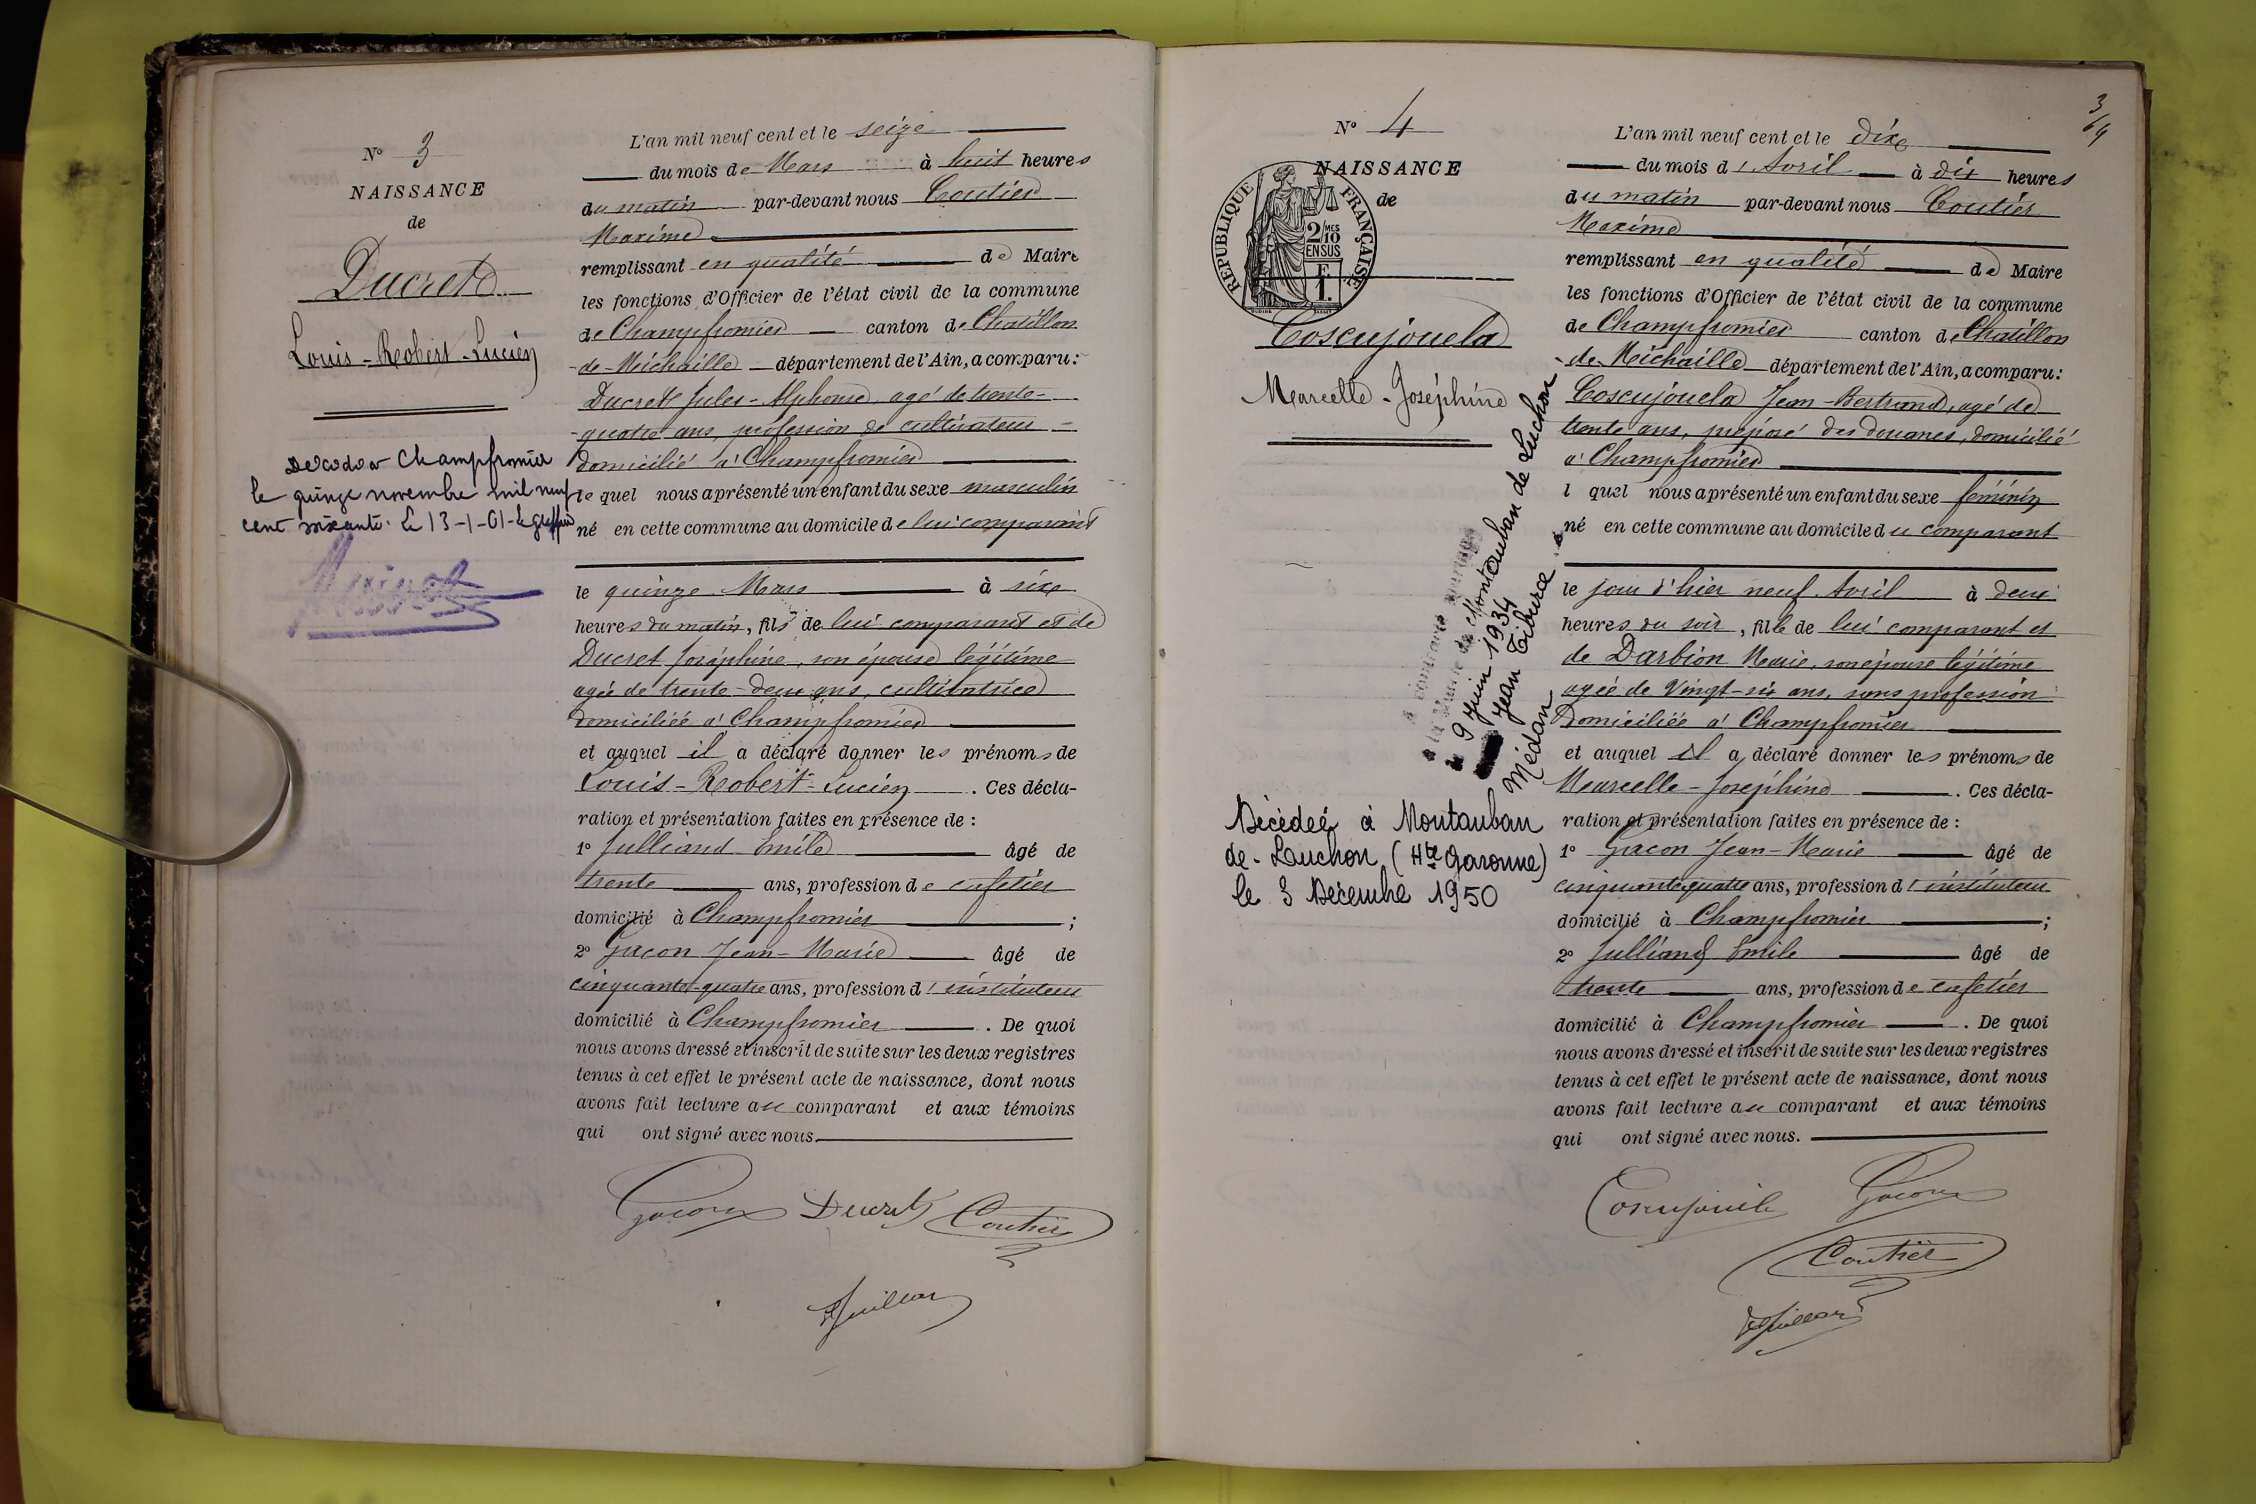 N° 3
NAISSANCE
de
Ducret
Louis-Robert-Lucien
Décédé à Champfromier
le quinze novembre mil neuf
cent soixante. Le 13-1-61- Le greffier
L'an mil neuf cent et le seize
du mois de Mars à huit heures
du matin par-devant nous Coutier
Maxime
remplissant en qualité de Maire
les fonctions d'Officier de l'état civil de la commune
de Champfromier canton de Chatillon
-de-Michaille département de l'Ain, a comparu:
Ducret Jules-Alphonse agé de trente-
-quatre ans, profession de cultivateur-
domicilié à Champfromier
le quel nous a présenté un enfant du sexe masculin
né en cette commune au domicile de lui comparant
le quinze Mars à six
heures du matin, fils de lui comparant et de
Ducret Joséphine, son épouse légitime
agée de trente-deux ans, cultivatrice
domiciliée à Champfromier
et auquel il a déclaré donner les prénoms de
Louis-Robert-Lucien. Ces décla-
ration et présentation faites en présence de:
1° Julliand Emile âgé de
trente ans, profession de cafetier
domicilié à Champfromier;
2° Gacon Jean-Marie âgé de
cinquante-quatre ans, profession d'instituteur
domicilié à Champfromier. De quoi
nous avons dressé et inscrit de suite sur les deux registres
tenus à cet effet le présent acte de naissance, dont nous
avons fait lecture au comparant et aux témoins
qui ont signé avec nous.
Gacon Ducret Coutier
3
69
N° 4
NAISSANCE
de
RÉPUBLIQUE FRANÇAISE
2 MES
10
EN SUS
F
1.
Coscujouela
Marcelle-Joséphine
A contracté mariage
à la Mairie de Montauban de Luchon
le 9 Juin 1934
Jean Tiburce
Médan
Décédée à Montauban
de-Luchon (Hte Garonne)
le 3 Décembre 1950
L'an mil neuf cent et le dix
du mois d'Avril à dix heures
du matin par-devant nous Coutier
Maxime
remplissant en qualité de Maire
les fonctions d'Officier de l'état civil de la commune
de Champfromier canton de Chatillon
-de-Michaille département de l'Ain, a comparu:
Coscujouela Jean-Bertrand, agé de
trente ans, préposé des douanes, domicilié
à Champfromier
l quel nous a présenté un enfant du sexe féminin
né e en cette commune au domicile du comparant
le jour d'hier neuf Avril à deux
heures du soir, fille de lui comparant et
de Darbion Marie, son épouse légitime
agée de Vingt-six ans, sans profession
Domiciliée à Champfromier
et auquel il a déclaré donner les prénoms de
Marcelle-Joséphine. Ces décla-
ration et présentation faites en présence de:
1° Gacon Jean-Marie âgé de
cinquante-quatre ans, profession d'instituteur
domicilié à Champfromier;
2° Julliand Emile âgé de
trente ans, profession de cafetier
domicilié à Champfromier. De quoi
nous avons dressé et inscrit de suite sur les deux registres
tenus à cet effet le présent acte de naissance, dont nous
avons fait lecture au comparant et aux témoins
qui ont signé avec nous.
Gacon
Coutier